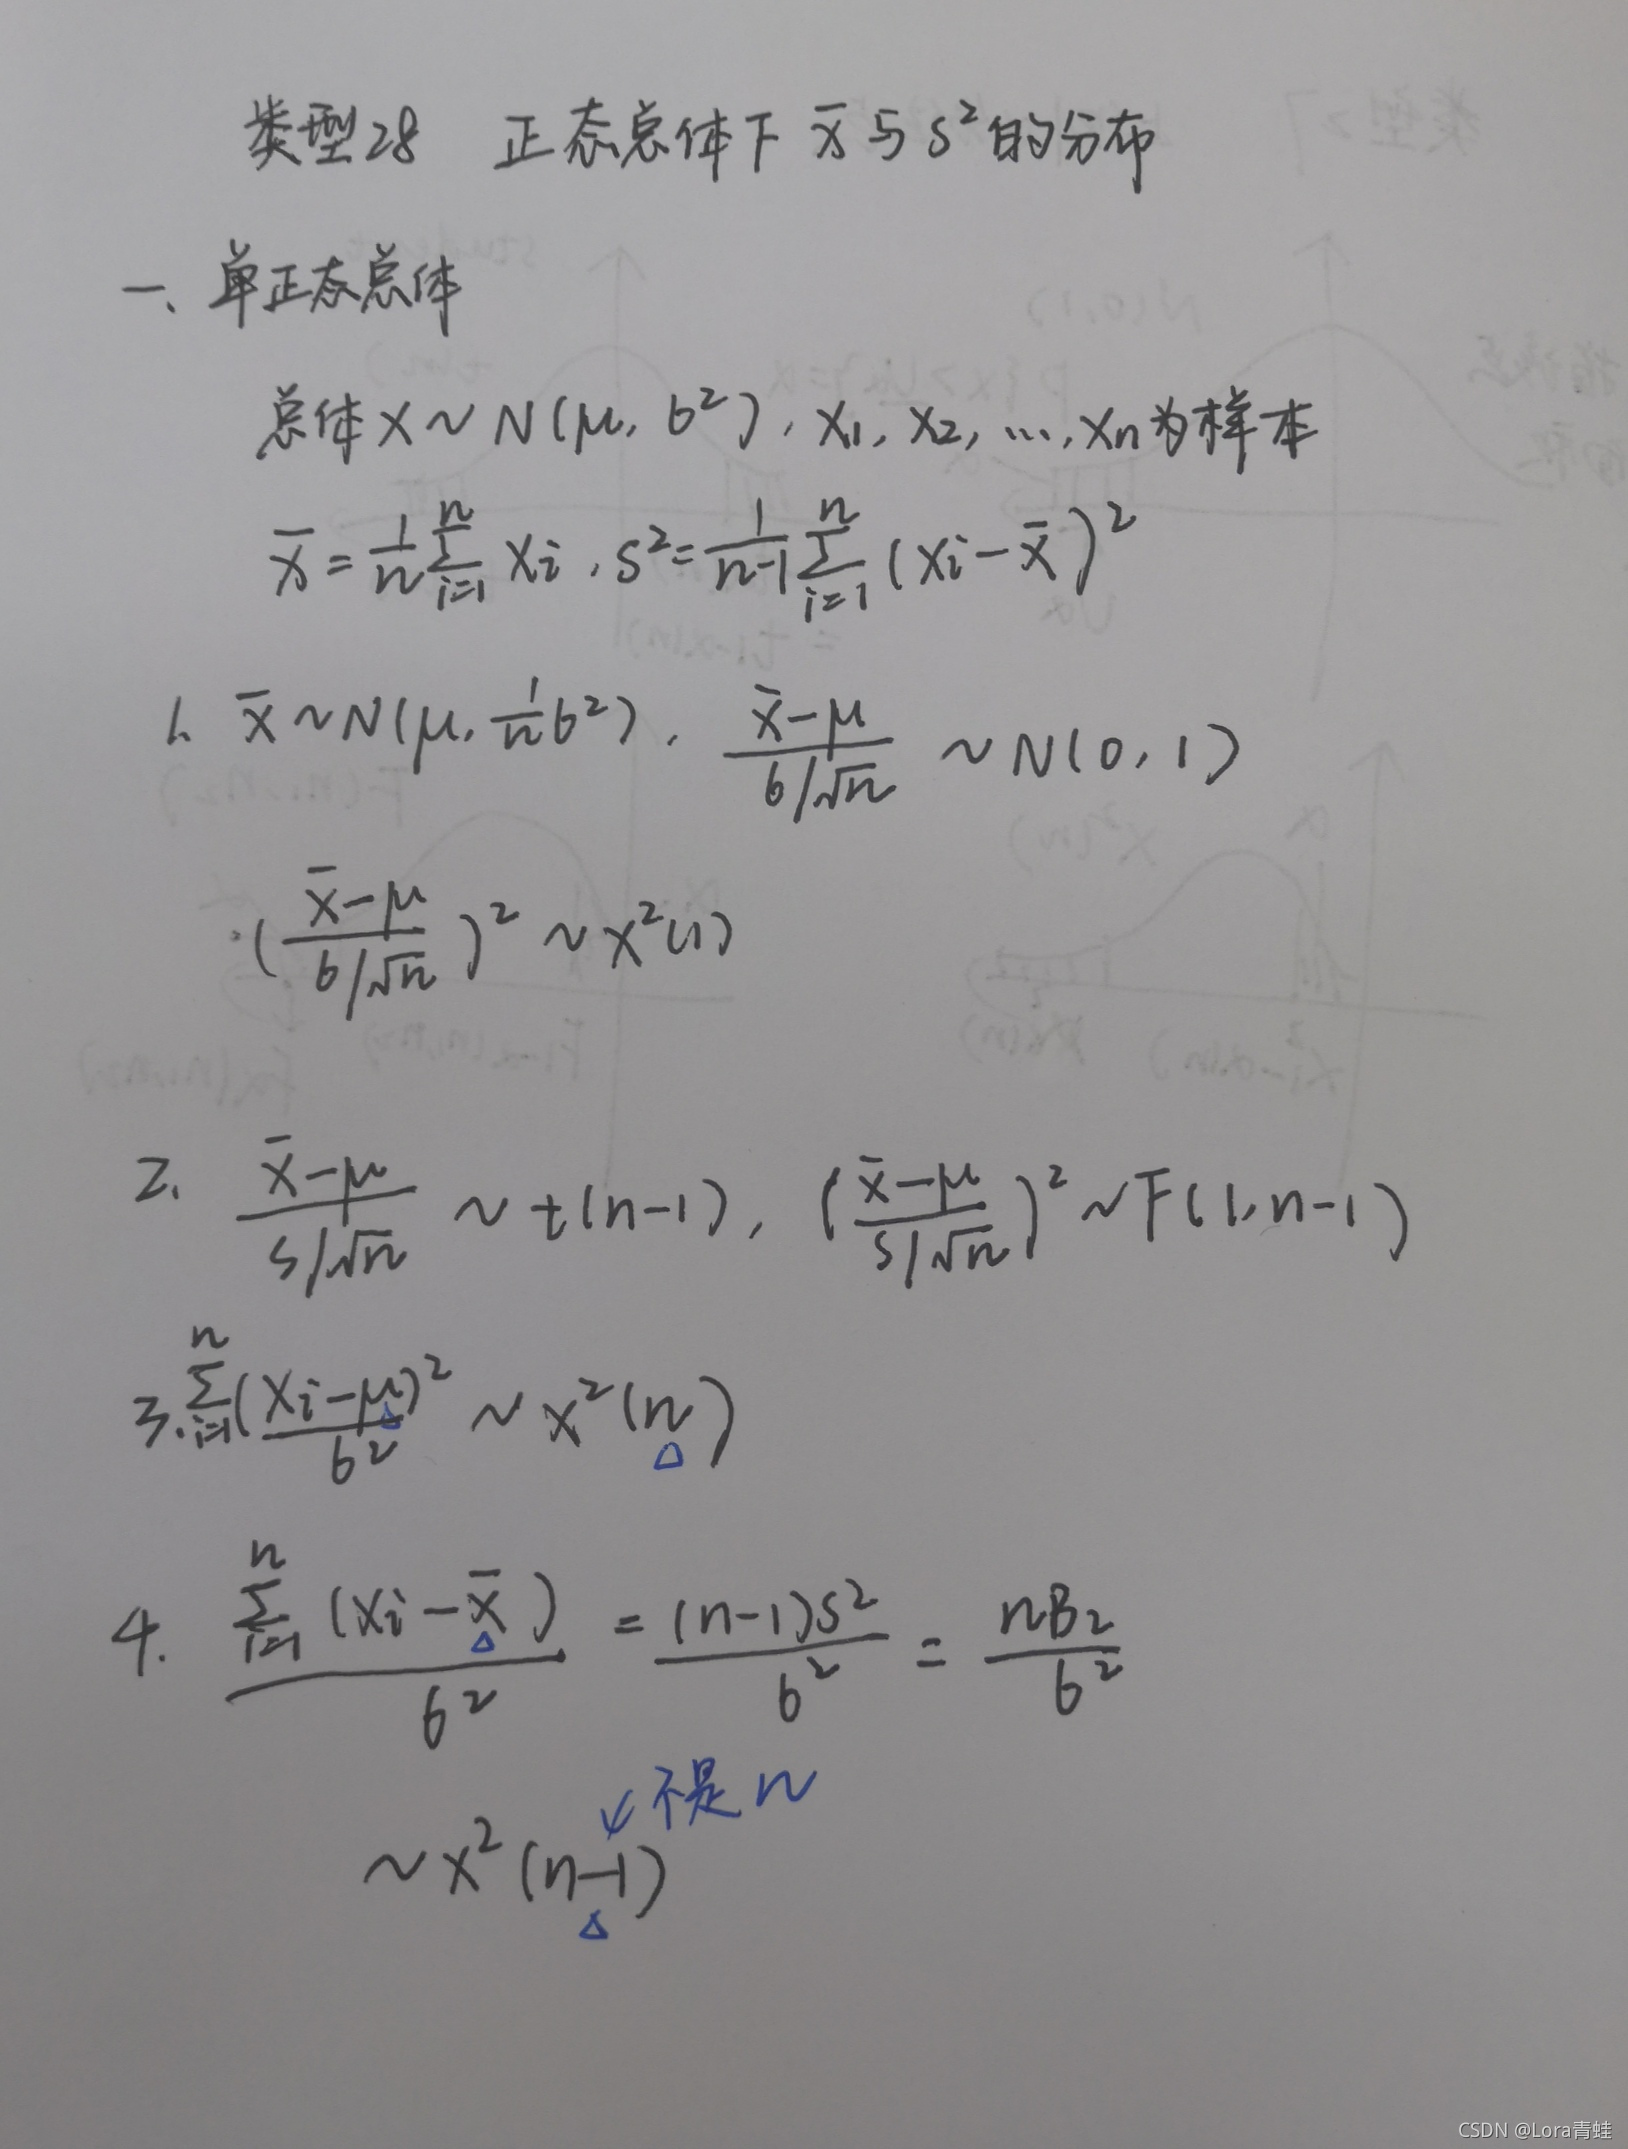 类型28 正态总体下 x̄ 与 s² 的分布
一、单正态总体
总体 X ~ N(μ, σ²), X₁, X₂, …, Xn 为样本
x̄ = 1/n Σ_{i=1}^{n} Xi, s² = 1/(n-1) Σ_{i=1}^{n} (Xi - x̄)²
1. x̄ ~ N(μ, 1/n σ²), (x̄-μ)/(σ/√n) ~ N(0, 1)
((x̄-μ)/(σ/√n))² ~ χ²(1)
2. (x̄-μ)/(s/√n) ~ t(n-1), ((x̄-μ)/(s/√n))² ~ F(1, n-1)
3. Σ_{i=1}^{n} (Xi-μ)²/σ² ~ χ²(n)
4. Σ_{i=1}^{n} (Xi - x̄)/σ² = (n-1)s²/σ² = nB₂/σ²
不是n
~ χ²(n-1)
CSDN @Lora青蛙